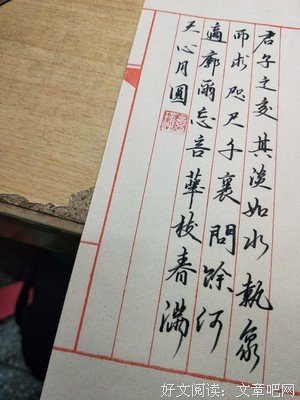 君子之交其淡如水執象
而求咫尺千裏問餘何
適廓爾忘言華枝春滿
天心月圓
好文阅读:文章吧网